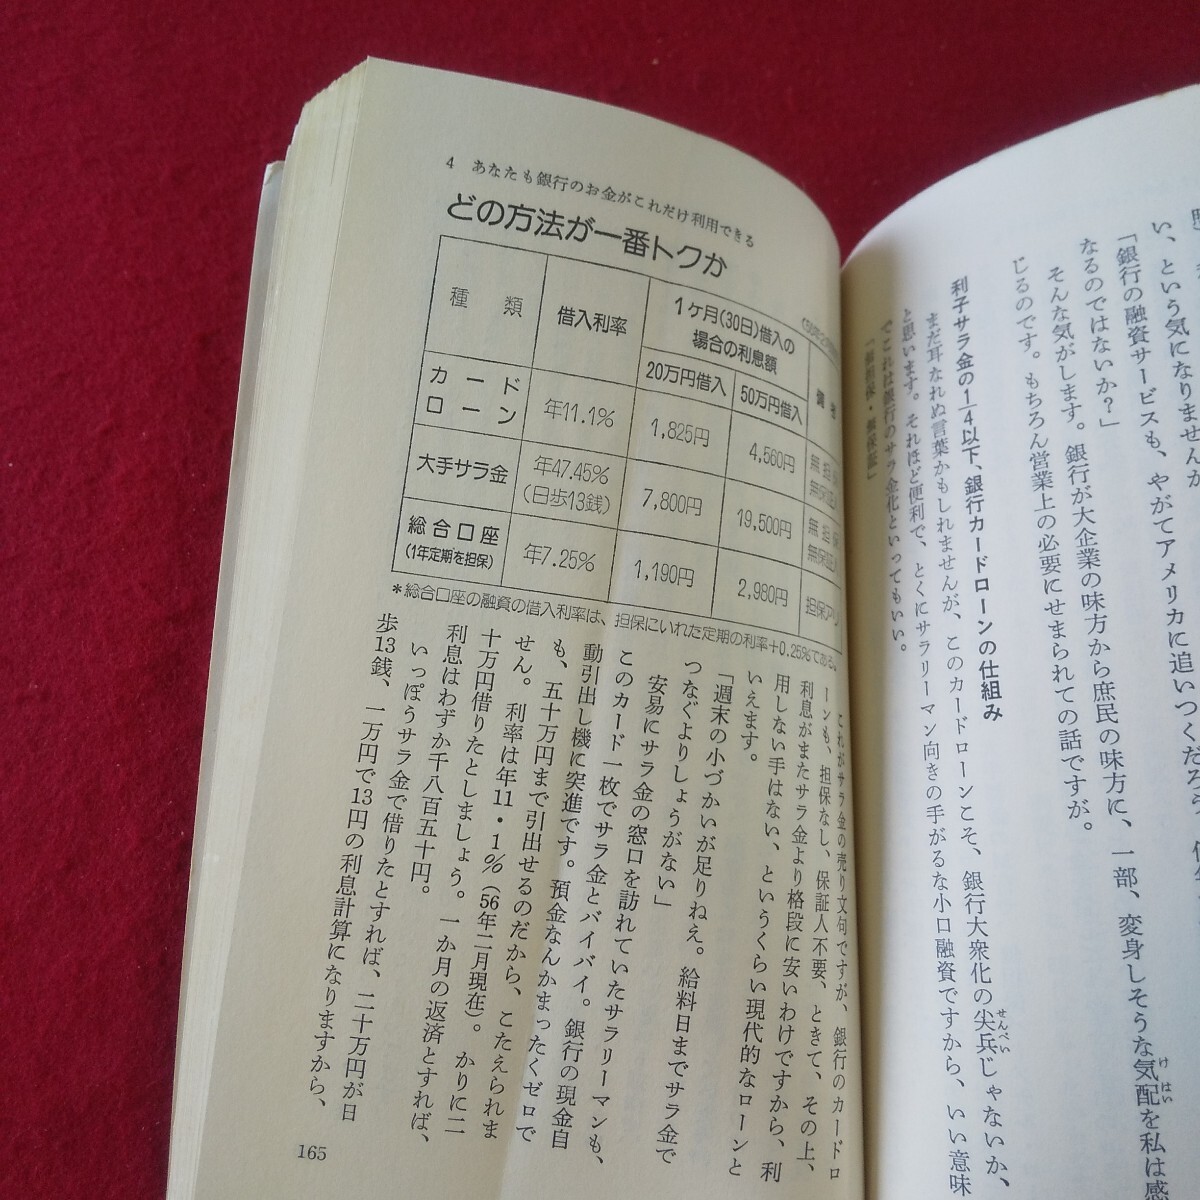 い、という気になりませんか
「銀行の融資サービスも、やがてアメリカに追いつくだろう
なるのではないか？」
そんな気がします。銀行が大企業の味方から庶民の味方に、一部、変身しそうな気配を私は感
けはい
じるのです。もちろん営業上の必要にせまられての話ですが。
利子サラ金の1/4以下、銀行カードローンの仕組み
まだ耳なれぬ言葉かもしれませんが、このカードローンこそ、銀行大衆化の尖兵じゃないか、
せんぺい
と思います。それほど便利で、とくにサラリーマン向きの手がるな小口融資ですから、いい意味
でこれは銀行のサラ金化といってもいい。
「無担保・無保証」
4 あなたも銀行のお金がこれだけ利用できる
どの方法が一番トクか
種類 借入利率 1ケ月(30日)借入の場合の利息額 備考
20万円借入 50万円借入
カードローン 年11.1% 1,825円 4,560円 無担保 無保証人
大手サラ金 年47.45% (日歩13銭) 7,800円 19,500円 無担保 無保証人
総合口座 (1年定期を担保) 年7.25% 1,190円 2,980円 担保アリ
*総合口座の融資の借入利率は、担保にいれた定期の利率+0.25%である。
これがサラ金の売り文句ですが、銀行のカードロ
ーンも、担保なし、保証人不要、ときて、その上、
利息がまたサラ金より格段に安いわけですから、利
用しない手はない、というくらい現代的なローンと
いえます。
「週末の小づかいが足りねえ。給料日までサラ金で
つなぐよりしょうがない」
安易にサラ金の窓口を訪れていたサラリーマンも、
このカード一枚でサラ金とバイバイ。銀行の現金自
動引出し機に突進です。預金なんかまったくゼロで
も、五十万円まで引出せるのだから、こたえられま
せん。利率は年11・1%（56年二月現在）。かりに二
十万円借りたとしましょう。一か月の返済とすれば、
利息はわずか千八百五十円。
いっぽうサラ金で借りたとすれば、二十万円が日
歩13銭、一万円で13円の利息計算になりますから、
165